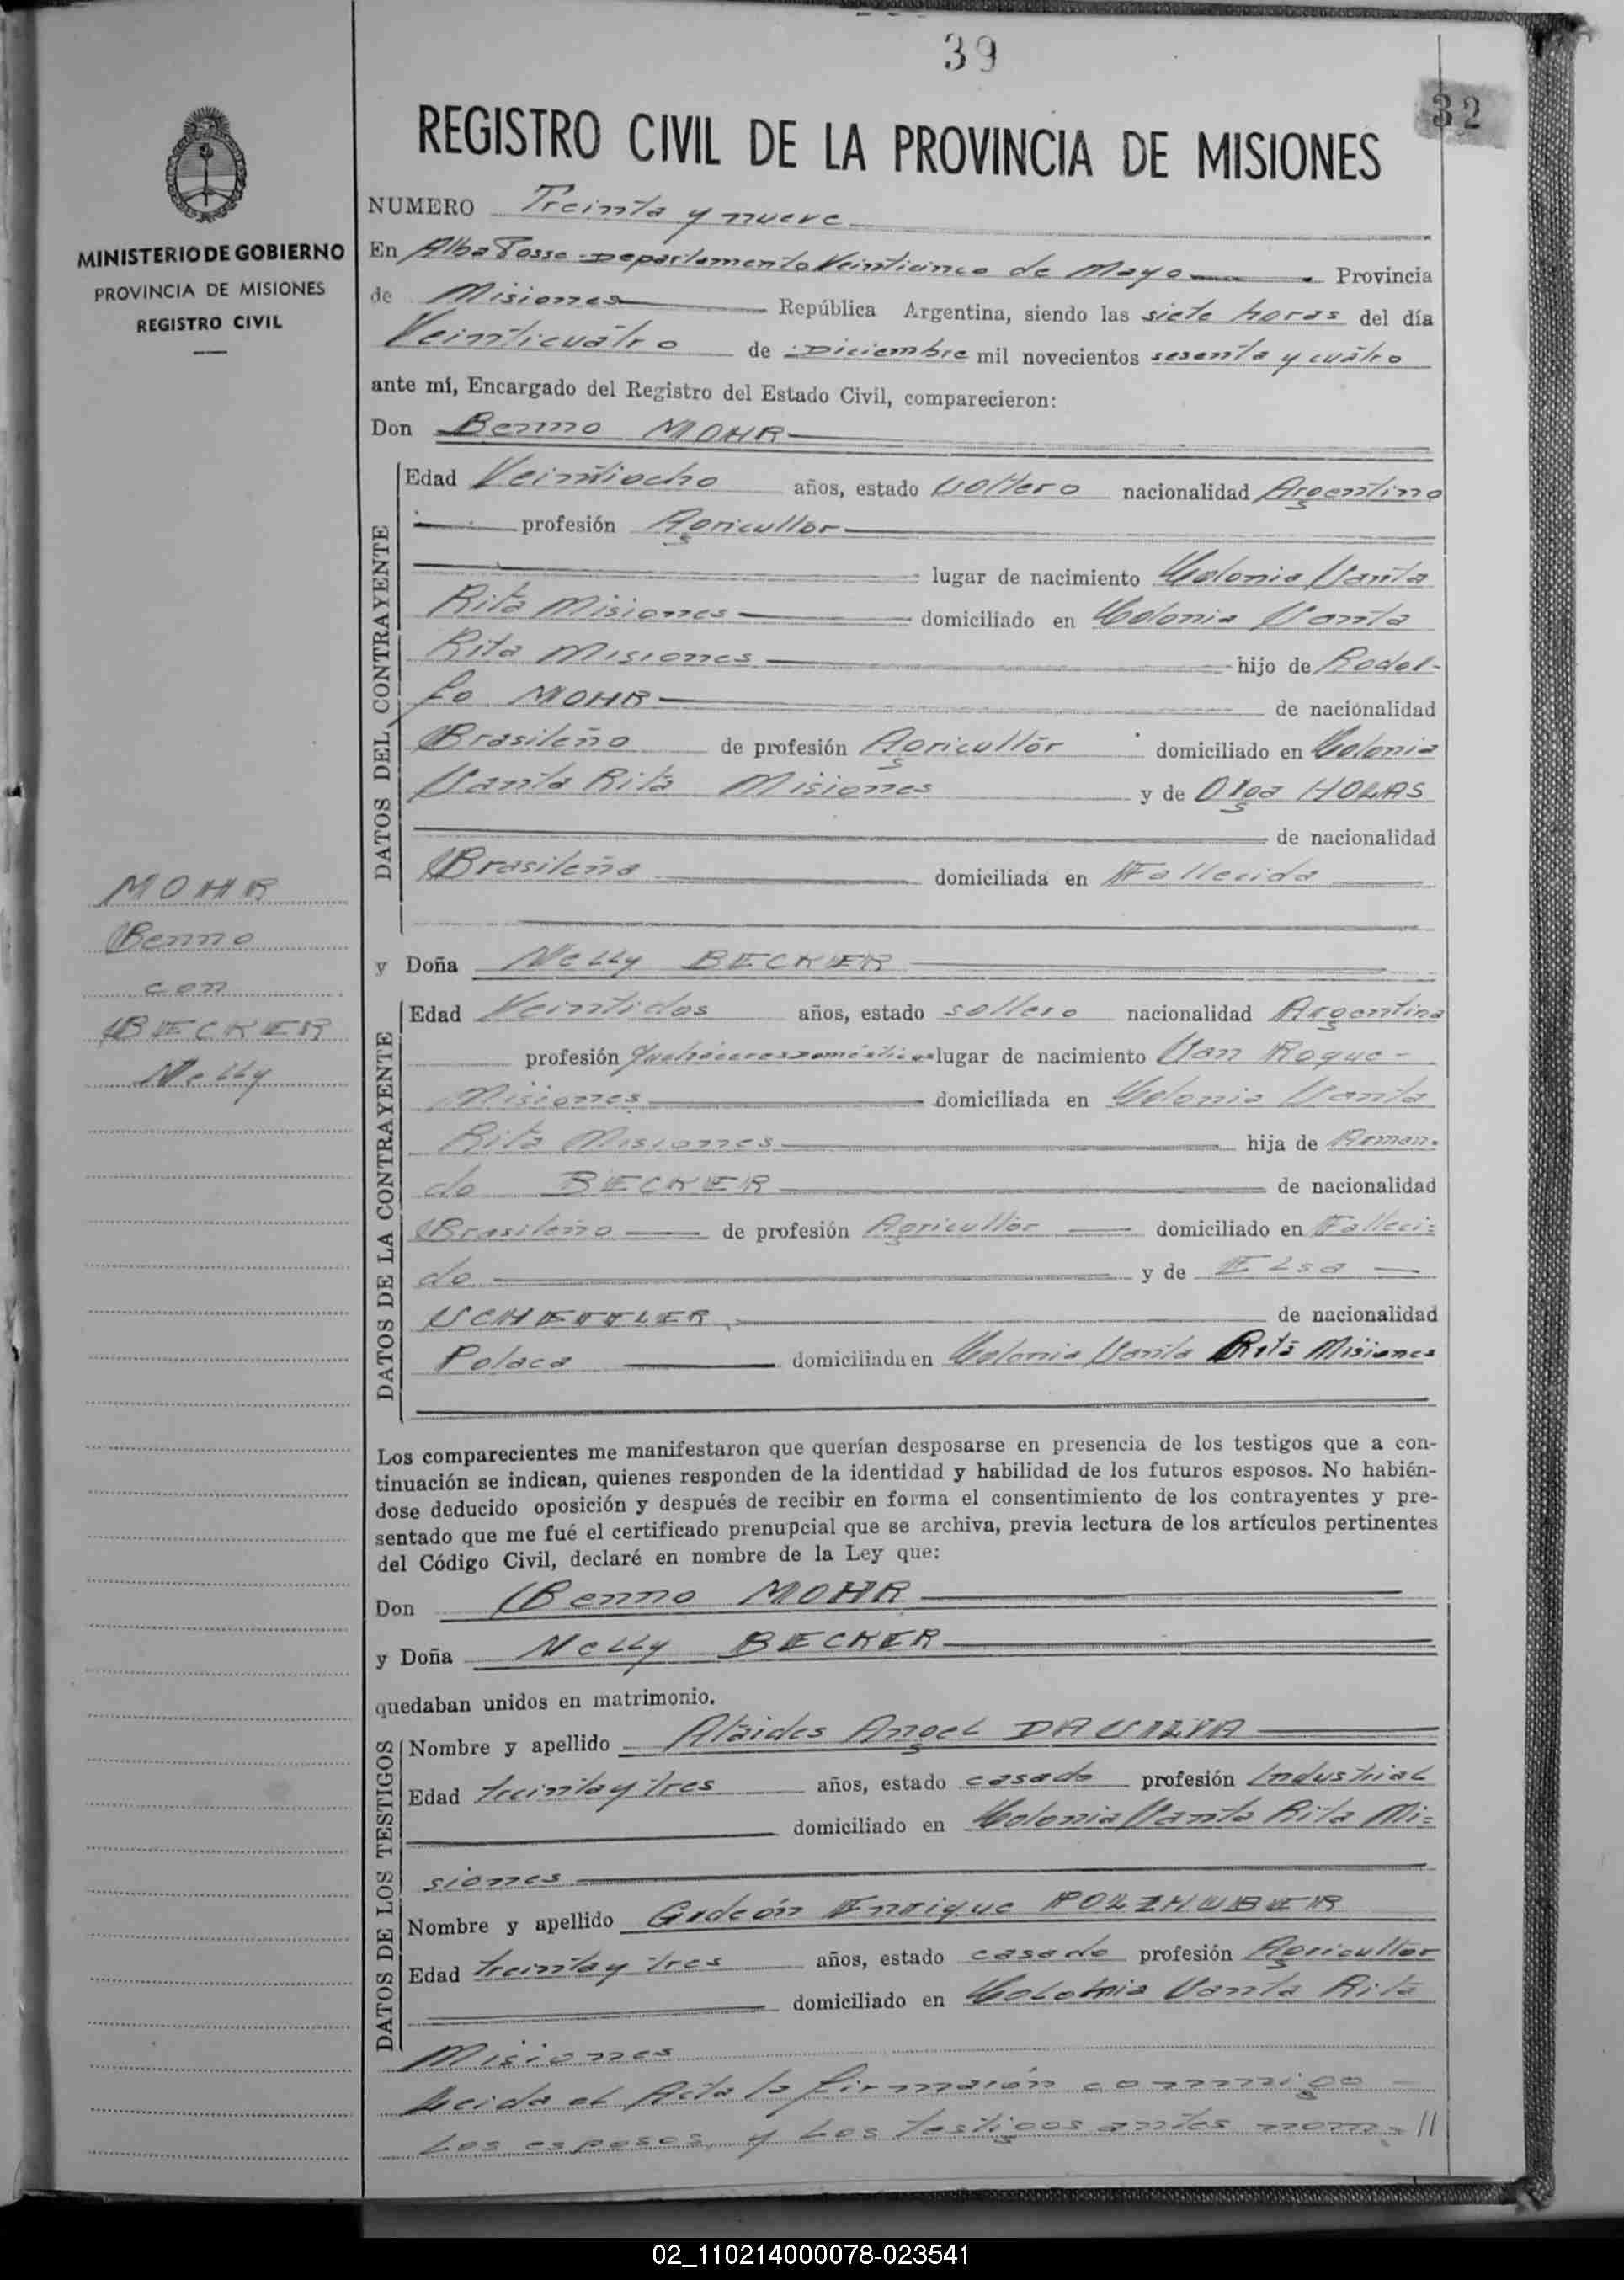 39
32
REGISTRO CIVIL DE LA PROVINCIA DE MISIONES
MINISTERIO DE GOBIERNO
PROVINCIA DE MISIONES
REGISTRO CIVIL
NUMERO Treinta y nueve
En Alba Posse Departamento Veinticinco de Mayo Provincia
de Misiones República Argentina, siendo las siete horas del día
Veinticuatro de Diciembre mil novecientos sesenta y cuatro
ante mí, Encargado del Registro del Estado Civil, comparecieron:
Don Benno MOHR
DATOS DEL CONTRAYENTE
Edad Veintiocho años, estado soltero nacionalidad Argentino
profesión Agricultor
lugar de nacimiento Colonia Santa
Rita Misiones domiciliado en Colonia Santa
Rita Misiones hijo de Rodol-
fo MOHR de nacionalidad
Brasileño de profesión Agricultor domiciliado en Colonia
Santa Rita Misiones y de Olga HOLAS
de nacionalidad
Brasileña domiciliada en Fallecida
MOHR
Benno
con
BECKER
Nelly
y Doña Nelly BECKER
DATOS DE LA CONTRAYENTE
Edad Veintidos años, estado soltera nacionalidad Argentina
profesión Quehaceres domésticos lugar de nacimiento San Roque -
Misiones domiciliada en Colonia Santa
Rita Misiones hija de Arman-
do BECKER de nacionalidad
Brasileño de profesión Agricultor domiciliado en Falleci=
do y de Elsa
SCHETTLER de nacionalidad
Polaca domiciliada en Colonia Santa Rita Misiones
Los comparecientes me manifestaron que querían desposarse en presencia de los testigos que a con-
tinuación se indican, quienes responden de la identidad y habilidad de los futuros esposos. No habién-
dose deducido oposición y después de recibir en forma el consentimiento de los contrayentes y pre-
sentado que me fué el certificado prenupcial que se archiva, previa lectura de los artículos pertinentes
del Código Civil, declaré en nombre de la Ley que:
Don Benno MOHR
y Doña Nelly BECKER
quedaban unidos en matrimonio.
DATOS DE LOS TESTIGOS
Nombre y apellido Alsides Angel DA SILVA
Edad treinta y tres años, estado casado profesión Industrial
domiciliado en Colonia Santa Rita Mi=
siones
Nombre y apellido Gedeón Enrique HOLZHUBER
Edad treinta y tres años, estado casado profesión Agricultor
domiciliado en Colonia Santa Rita
Misiones
Leida el Acta la firmarón conmigo -
Los esposos, y Los testigos antes nom= //
02_110214000078-023541